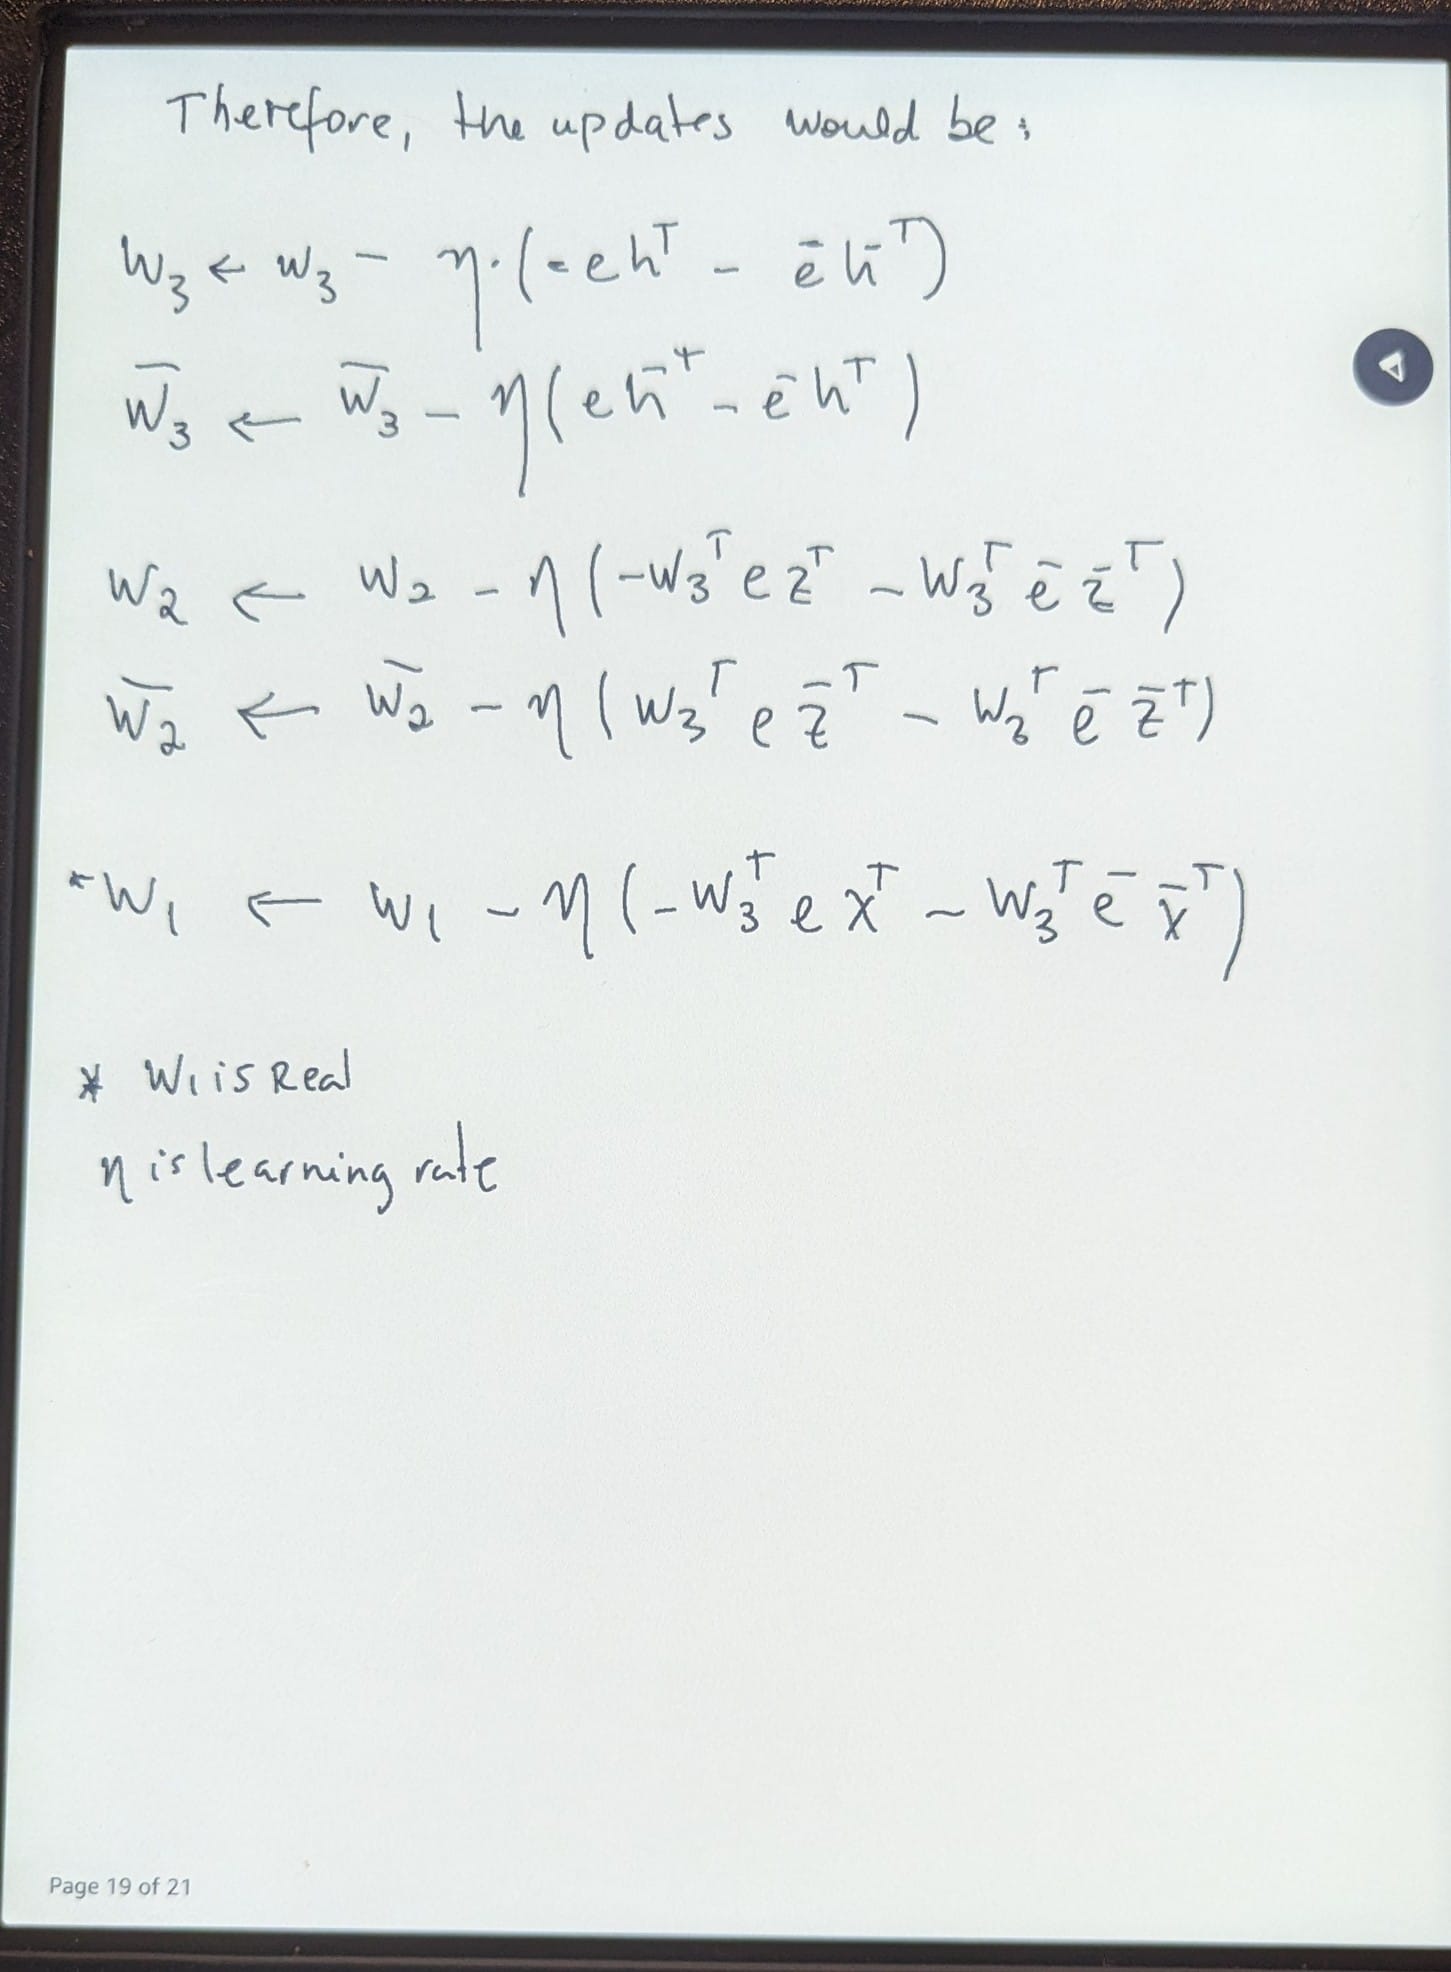 Therefore, the updates would be:
W₃ ← W₃ - η·(-ehᵀ - ēh̄ᵀ)
W̄₃ ← W̄₃ - η(eh̄ᵀ - ēhᵀ)
W₂ ← W₂ - η(-W₃ᵀezᵀ - W₃ᵀēz̄ᵀ)
W̄₂ ← W̄₂ - η(W₃ᵀez̄ᵀ - W₃ᵀēz̄ᵀ)
*W₁ ← W₁ - η(-W₃ᵀexᵀ - W₃ᵀēx̄ᵀ)
* W₁ is Real
η is learning rate
Page 19 of 21